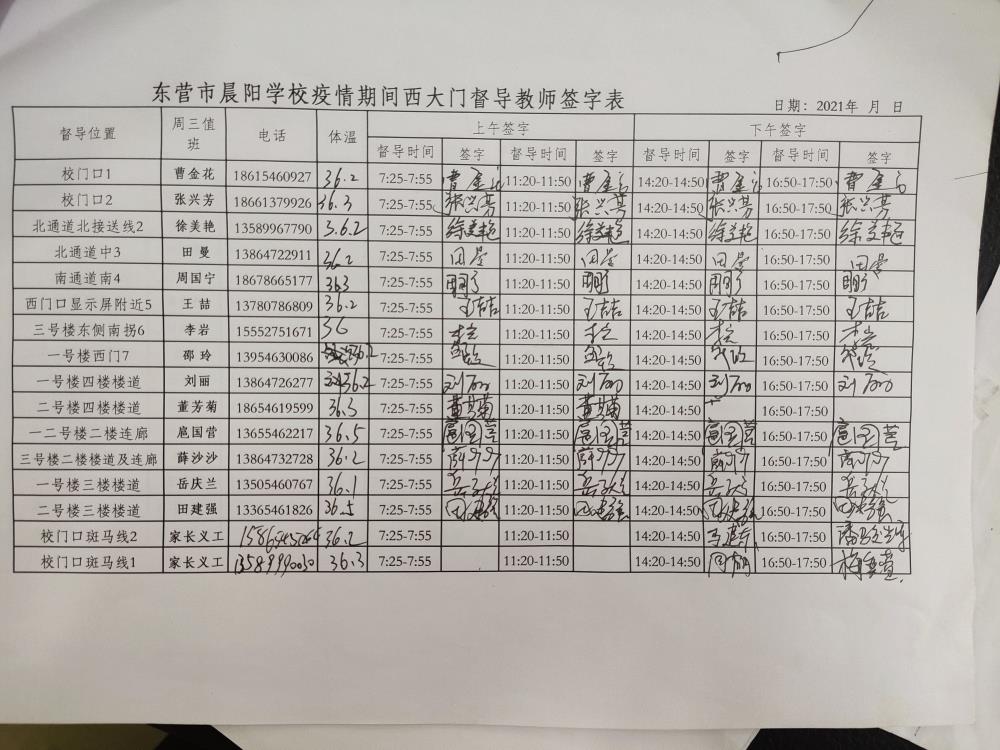 东营市晨阳学校疫情期间西大门督导教师签字表
日期：2021年 月 日
督导位置 周三值班 电话 体温 上午签字 下午签字
督导时间 签字 督导时间 签字 督导时间 签字 督导时间 签字
校门口1 曹金花 18615460927 36.2 7:25-7:55 曹金花 11:20-11:50 曹金花 14:20-14:50 曹金花 16:50-17:50 曹金花
校门口2 张兴芳 18661379926 36.3 7:25-7:55 张兴芳 11:20-11:50 张兴芳 14:20-14:50 张兴芳 16:50-17:50 张兴芳
北通道北接送线2 徐美艳 13589967790 3.6.2 7:25-7:55 徐美艳 11:20-11:50 徐美艳 14:20-14:50 徐美艳 16:50-17:50 徐美艳
北通道中3 田曼 13864722911 36.2 7:25-7:55 田曼 11:20-11:50 田曼 14:20-14:50 田曼 16:50-17:50 田曼
南通道南4 周国宁 18678665177 36.3 7:25-7:55 周国宁 11:20-11:50 周国宁 14:20-14:50 周国宁 16:50-17:50 周国宁
西门口显示屏附近5 王喆 13780786809 36.2 7:25-7:55 王喆 11:20-11:50 王喆 14:20-14:50 王喆 16:50-17:50 王喆
三号楼东侧南拐6 李岩 15552751671 36 7:25-7:55 李岩 11:20-11:50 李岩 14:20-14:50 李岩 16:50-17:50 李岩
一号楼西门7 邵玲 13954630086 36.2 7:25-7:55 邵玲 11:20-11:50 邵玲 14:20-14:50 邵玲 16:50-17:50 邵玲
一号楼四楼楼道 刘丽 13864726277 36.2 7:25-7:55 刘丽 11:20-11:50 刘丽 14:20-14:50 刘丽 16:50-17:50 刘丽
二号楼四楼楼道 董芳菊 18654619599 36.3 7:25-7:55 董芳菊 11:20-11:50 董芳菊 14:20-14:50 16:50-17:50
一二号楼二楼连廊 扈国营 13655462217 36.5 7:25-7:55 扈国营 11:20-11:50 扈国营 14:20-14:50 扈国营 16:50-17:50 扈国营
三号楼二楼楼道及连廊 薛沙沙 13864732728 36.2 7:25-7:55 薛沙沙 11:20-11:50 薛沙沙 14:20-14:50 薛沙沙 16:50-17:50 薛沙沙
一号楼三楼楼道 岳庆兰 13505460767 36.1 7:25-7:55 岳庆兰 11:20-11:50 岳庆兰 14:20-14:50 岳庆兰 16:50-17:50 岳庆兰
二号楼三楼楼道 田建强 13365461826 36.5 7:25-7:55 田建强 11:20-11:50 田建强 14:20-14:50 田建强 16:50-17:50 田建强
校门口斑马线2 家长义工 36.2 7:25-7:55 11:20-11:50 14:20-14:50 16:50-17:50
校门口斑马线1 家长义工 13589990030 36.3 7:25-7:55 11:20-11:50 14:20-14:50 16:50-17:50